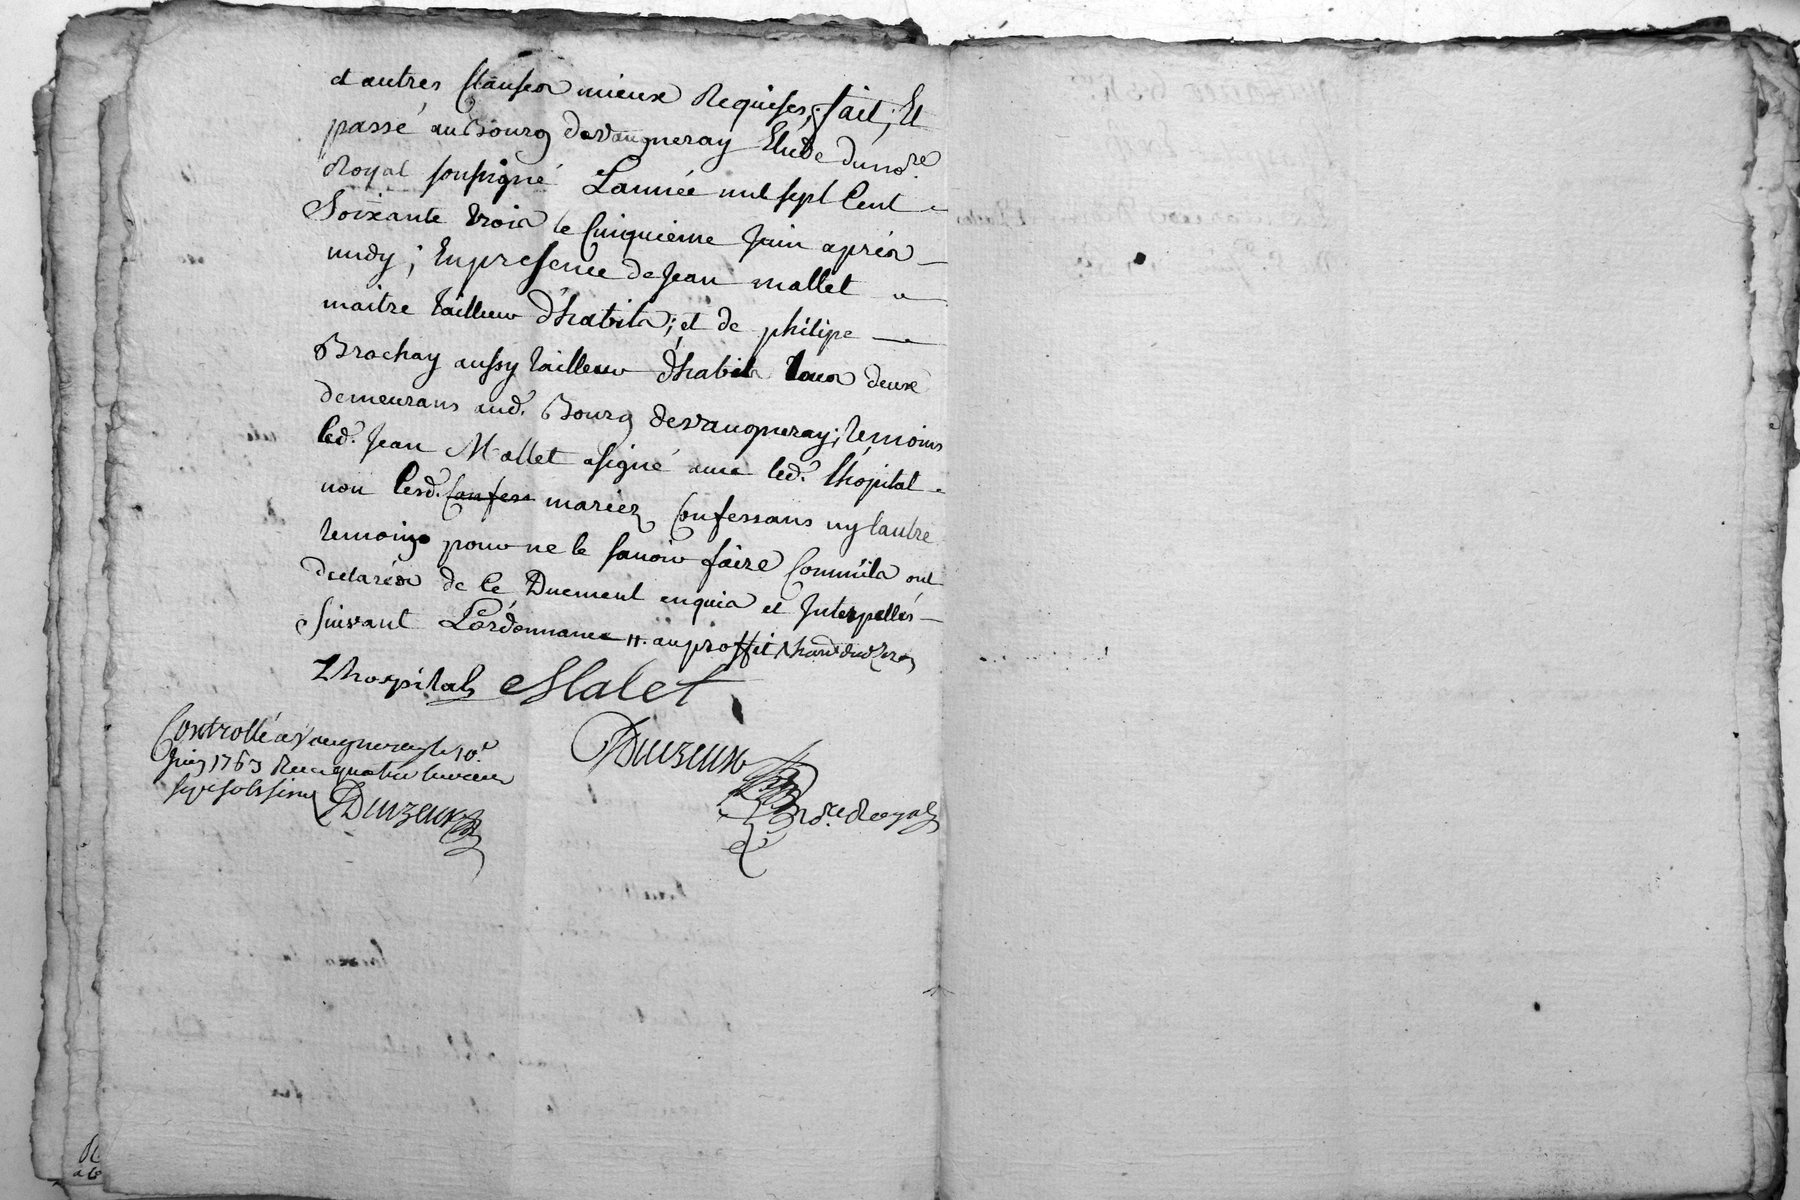 et autres Clauses mieux Requises; fait; Et
passé au Bourg devaugneray Etude du no.re
Royal soussigné Lannée mil sept Cent
Soixante trois le Cinquieme Juin après
midy; En presence de Jean mallet
maitre tailleur d'habits; et de philipe
Brochay aussy tailleur d'habits tous deux
demeurans aud. Bourg devaugneray; temoins
led. Jean Mallet a signé avec led. lhópital
non lesd. mariez Confessans ny lautre
temoins pour ne le savoir faire Comm'ils ont
declarés de Ce Duement enquis et Interpellés
suivant L'ordonnance #. au proffit
Lhospital Malet
Duizeux
no.re Royal
Controllé a Vaugneray le 10.e
Juin 1763 Recu quatre livres
sept sols six
Duizeux